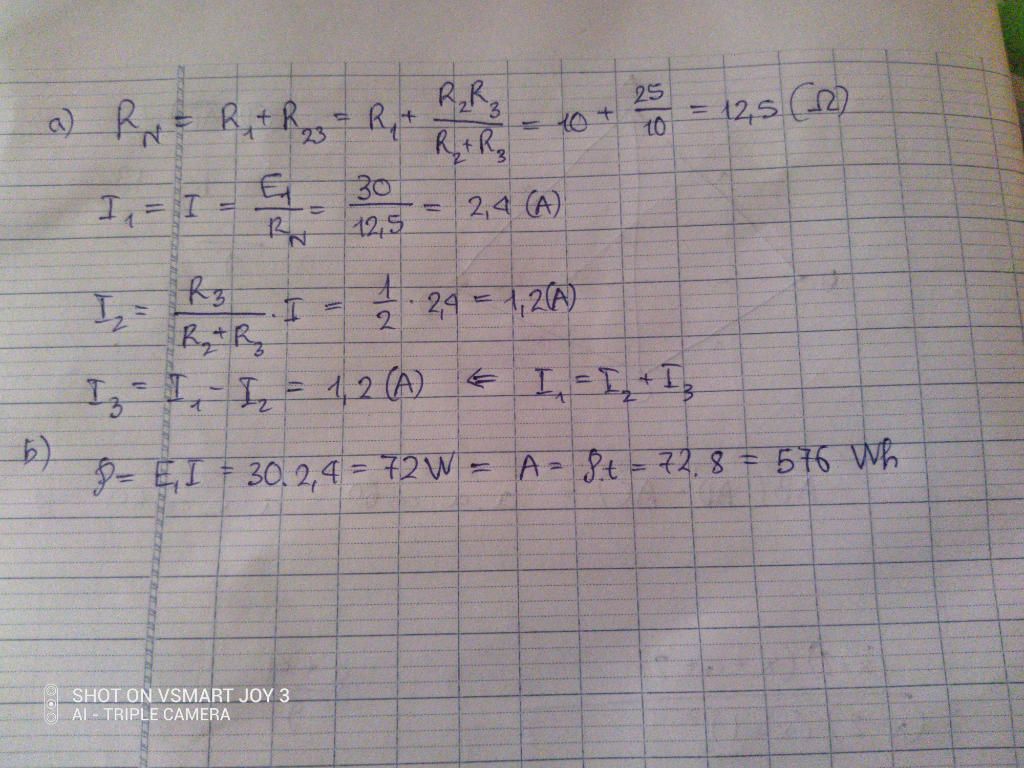 a) R_N = R_1 + R_23 = R_1 + \frac{R_2R_3}{R_2+R_3} = 10 + \frac{25}{10} = 12,5 (Ω)
I_1 = I = \frac{E_1}{R_N} = \frac{30}{12,5} = 2,4 (A)
I_2 = \frac{R_3}{R_2+R_3} . I = \frac{1}{2} . 2,4 = 1,2 (A)
I_3 = I_1 - I_2 = 1,2 (A) ⇐ I_1 = I_2 + I_3
b) P = E_1 I = 30.2,4 = 72 W = A = P.t = 72.8 = 576 Wh
SHOT ON VSMART JOY 3
AI - TRIPLE CAMERA